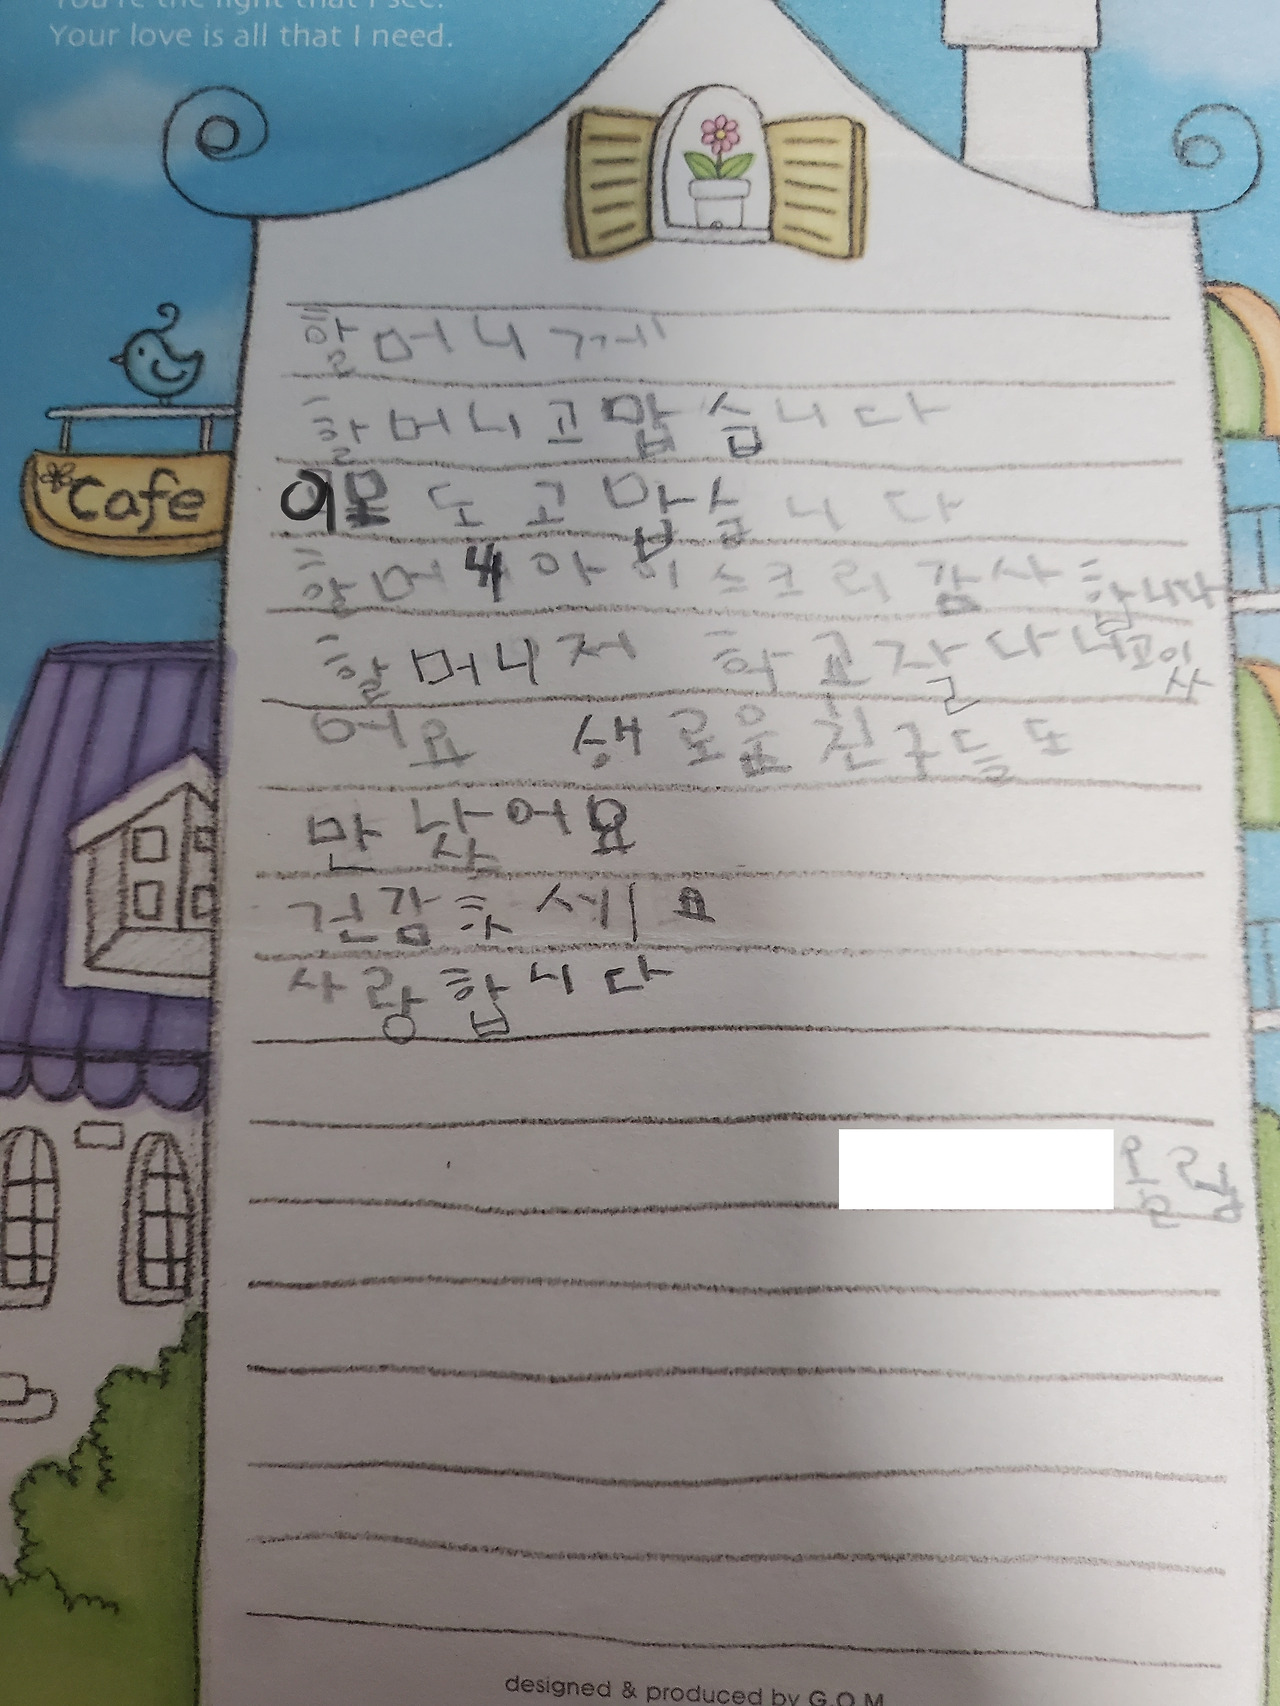 You're the light that I see.
Your love is all that I need.
Cafe
할머니께
할머니고맙습니다
이모도고맙습니다
할머니아이스크리감사합니다
할머니저 학교잘다니고이
사
어요 새로운친구들도
만났어요
건감하세요
사랑합니다
올림
designed & produced by G.O.M